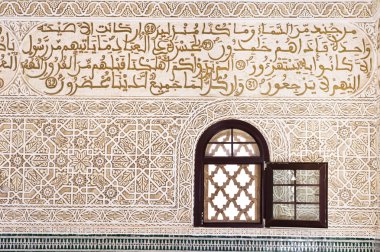 من جند من السماء وما كنا منزلين ان كانت الا صيحة
واحدة فاذا هم خمدون يحسرة على العباد ما ياتيهم من رسول
الا كانوا به يستهزءون الم يروا كم اهلكنا قبلهم من القرون
انهم اليهم لا يرجعون وان كل لما جميع لدينا محضرون